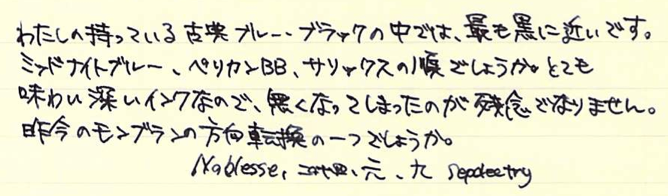 わたしの持っている古典ブルー・ブラックの中では、最も黒に近いです。
ミッドナイトブルー、ペリカンBB、サリックスの順でしょうか。とても
味わい深いインクなので、無くなってしまったのが残念でなりません。
昨今のモンブランの方向転換の一つでしょうか。
Noblesse, 元、九